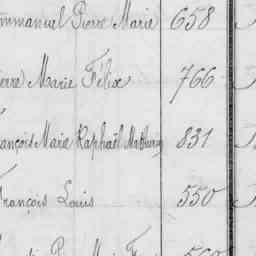 mmanuel Pierre Marie 658
ierre Marie Félix 766
rançois Marie Raphaël Mathurin 831
François Louis 550